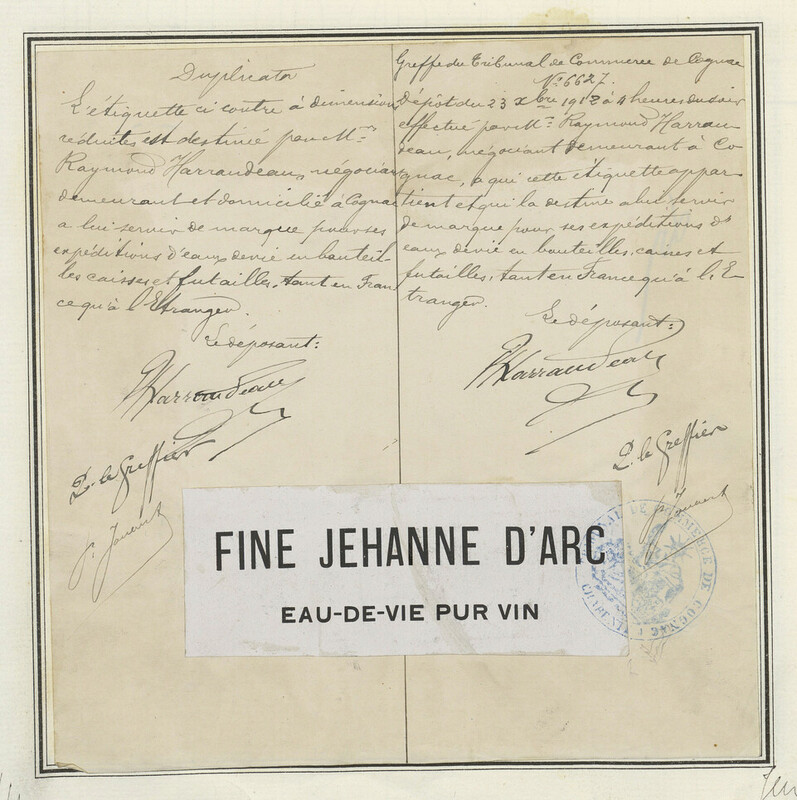 Duplicata
L'étiquette ci contre à dimensions
réduites est destinée par Mr
Raymond Harraudeau, négociant
demeurant et domicilié à Cognac
a lui servir de marque pour ses
expéditions d'eaux devie en bouteil-
les caisses et futailles, tant en Fran
ce qu'à l'Etranger.
Le déposant:
RHarraudeau
P. le Greffier
Greffe du Tribunal de Commerce de Cognac
No 6627.
Dépôt du 23 Xbre 1913 à 4 heures du soir
effectué par Mr Raymond Harrau-
deau, négociant demeurant à Co-
gnac, a qui cette étiquette appar-
tient et qui la destine a lui servir
de marque pour ses expéditions d'
eaux devie en bouteilles, caisses et
futailles, tant en France qu'à l'E-
tranger.
Le déposant:
RHarraudeau
P. le Greffier
FINE JEHANNE D'ARC
EAU-DE-VIE PUR VIN
TRIBUNAL DE COMMERCE DE COGNAC
CHARENTE